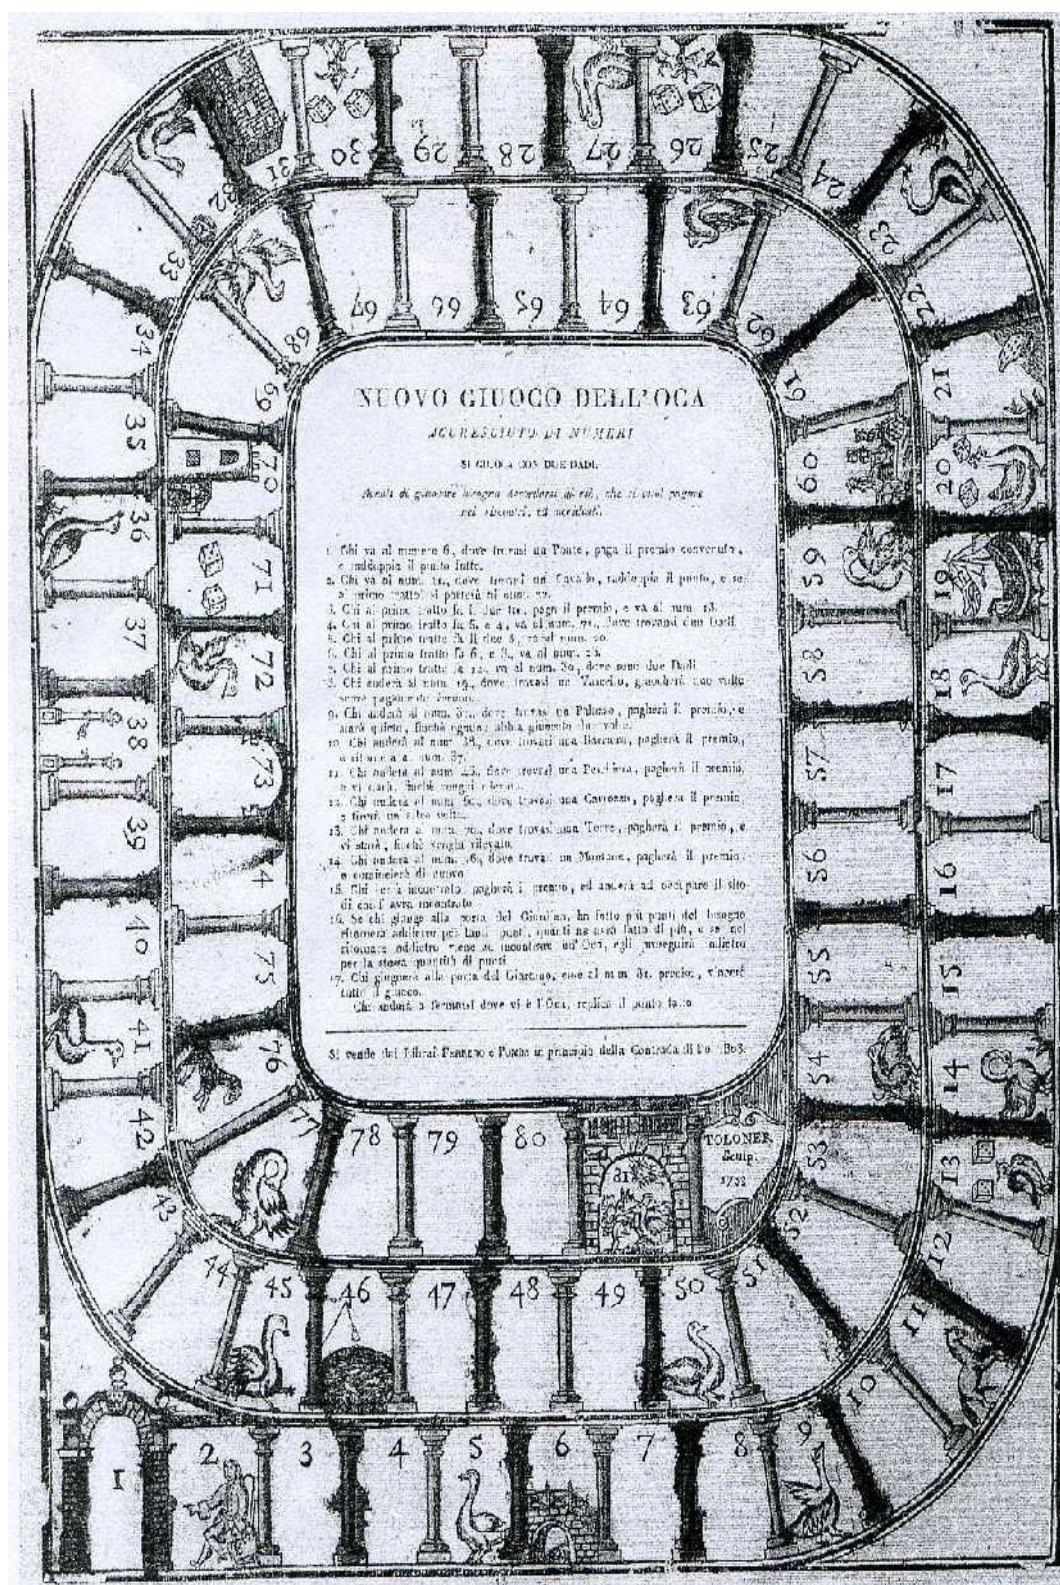 NUOVO GIUOCO DELL'OCA
ACCRESCIUTO DI NUMERI
SI GIUOCA CON DUE DADI.
di giuocare bisogna di ciò, che si vuol pagare
nei riscontri, ed accidenti.
1. Chi va al numero 6., dove trovasi un Ponte, paga il premio convenuto,
e raddoppia il punto fatto.
2. Chi va al num. 11., dove trovasi un Cavallo, raddoppia il punto, e se
al primo tratto si porterà al num. 22.
3. Chi al primo tratto fa paga il premio, e va al num. 13.
4. Chi al primo tratto fa 5. e 4., va al num. 71., dove trovansi due Dadi.
5. Chi al primo tratto fa li due va al num. 20.
6. Chi al primo tratto fa 6., e 3., va al num.
7. Chi al primo tratto fa 12., va al num. 30., dove sono due Dadi.
8. Chi anderà al num. 19., dove trovasi un Vascello, giuocherà una volta
9. Chi anderà al num. 31., dove trovasi un Palazzo, pagherà il premio, e
starà quieto, finchè ognuno abbia giuocato due volte.
10. Chi anderà al num. 38., dove trovasi una pagherà il premio,
e al num. 37.
11. Chi anderà al num. 46., dove trovasi una Peschiera, pagherà il premio,
e vi starà, finchè venghi rilevato.
12. Chi anderà al num. 60., dove trovasi una Carrozza, pagherà il premio
e tirerà un'altra volta.
13. Chi anderà al num. 70., dove trovasi una Torre, pagherà il premio, e
vi starà, finchè venghi rilevato.
14. Chi anderà al num. 76., dove trovasi un pagherà il premio,
e comincierà di nuovo
15. Chi verrà incontrato, pagherà il premio, ed anderà ad occupare il sito
di chi l'avrà incontrato
16. Se chi giunge alla porta del Giardino, ha fatto più punti del bisogno
ritornerà addietro per tanti punti, quanti ne avrà fatto di più, e se nel
ritornare addietro viene ad incontrare un'Oca, egli proseguirà addietro
per la stessa quantità di punti
17. Chi giugnerà alla porta del Giardino, cioè al num 81. preciso, vincerà
tutto il giuoco.
Chi anderà a fermarsi dove vi è l'Oca, replica il punto fatto
Si vende dai Librai e in principio della Contrada di Po
TOLONER
Sculp.
1
2
3
4
5
6
7
8
9
10
11
12
13
14
15
16
17
18
19
20
21
22
23
24
25
26
27
28
29
30
31
32
33
34
35
36
37
38
39
40
41
42
43
44
45
46
47
48
49
50
51
52
53
54
55
56
57
58
59
60
61
62
63
64
65
66
67
68
69
70
71
72
73
74
75
76
77
78
79
80
81